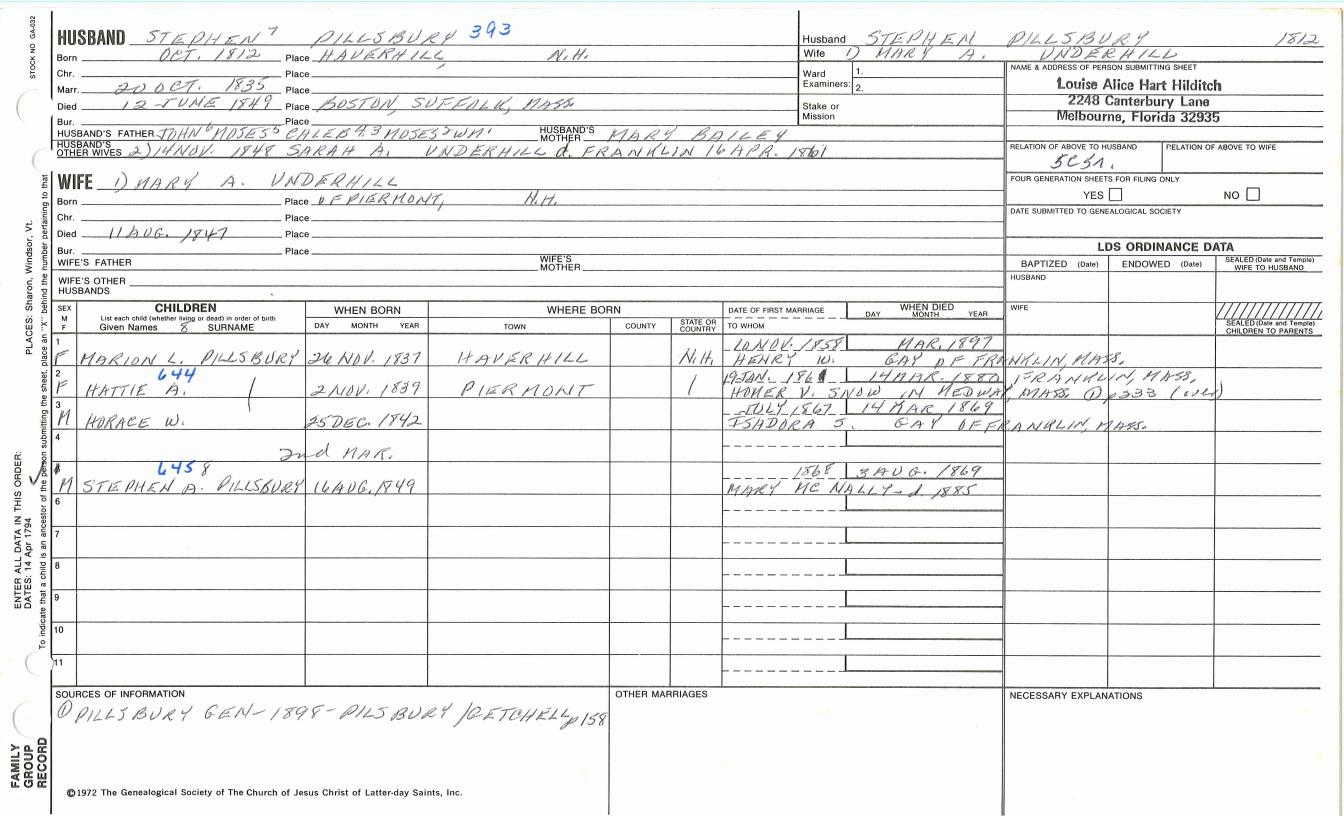 STOCK NO GA-032
HUSBAND STEPHEN 7 PILLSBURY 393
Born OCT. 1812 Place HAVERHILL, N.H.
Chr. Place
Marr. 20 OCT. 1835 Place
Died 12 JUNE 1849 Place BOSTON, SUFFOLK, MASS
Bur. Place
HUSBAND'S FATHER JOHN 6 MOSES 5 CALEB 4,3 MOSES 2 WM 1 HUSBAND'S MOTHER MARY BAILEY
HUSBAND'S OTHER WIVES 2) 14 NOV. 1848 SARAH A. UNDERHILL d. FRANKLIN 16 APR. 1861
Husband STEPHEN PILLSBURY 1812
Wife 1) MARY A. UNDERHILL
Ward Examiners: 1.
2.
Stake or Mission
NAME & ADDRESS OF PERSON SUBMITTING SHEET
Louise Alice Hart Hilditch
2248 Canterbury Lane
Melbourne, Florida 32935
RELATION OF ABOVE TO HUSBAND RELATION OF ABOVE TO WIFE
5C5R.
FOUR GENERATION SHEETS FOR FILING ONLY
YES NO
DATE SUBMITTED TO GENEALOGICAL SOCIETY
WIFE 1) MARY A. UNDERHILL
Born Place OF PIERMONT, N.H.
Chr. Place
Died 11 AUG. 1847 Place
Bur. Place
WIFE'S FATHER WIFE'S MOTHER
WIFE'S OTHER HUSBANDS
LDS ORDINANCE DATA
BAPTIZED (Date) ENDOWED (Date) SEALED (Date and Temple) WIFE TO HUSBAND
HUSBAND
WIFE
SEALED (Date and Temple) CHILDREN TO PARENTS
SEX M F CHILDREN WHEN BORN WHERE BORN DATE OF FIRST MARRIAGE WHEN DIED
List each child (whether living or dead) in order of birth
Given Names 8 SURNAME DAY MONTH YEAR TOWN COUNTY STATE OR COUNTRY TO WHOM DAY MONTH YEAR
1 10 NOV. 1858 MAR. 1897
F MARION L. PILLSBURY 26 NOV. 1837 HAVERHILL N.H. HENRY W. GAY OF FRANKLIN, MASS.
2 644 19 JAN. 1861 14 MAR. 1880 FRANKLIN, MASS.
F HATTIE A. 2 NOV. 1839 PIERMONT HOMER V. SNOW IN MEDWAY, MASS ① p233
3 JULY 1867 14 MAR. 1869
M HORACE W. 25 DEC. 1842 ISADORA S. GAY OF FRANKLIN, MASS.
4
2nd MAR.
645 8 1868 3 AUG. 1869
M STEPHEN A. PILLSBURY 16 AUG. 1849 MARY MC NALLY-d 1885
6
7
8
9
10
11
SOURCES OF INFORMATION OTHER MARRIAGES NECESSARY EXPLANATIONS
① PILLSBURY GEN-1898-PILSBURY/GETCHELL p158
©1972 The Genealogical Society of The Church of Jesus Christ of Latter-day Saints, Inc.
PLACES: Sharon, Windsor, Vt.
ENTER ALL DATA IN THIS ORDER:
DATES: 14 Apr 1794
To indicate that a child is an ancestor of the person submitting the sheet, place an "X" behind the number pertaining to that
FAMILY GROUP RECORD